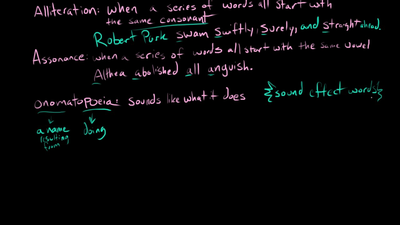 Alliteration: when a series of words all start with
the same consonant
Robert Purk swam swiftly, surely, and straight ahead.
Assonance: when a series of words all start with the same vowel
Althea abolished all anguish.
onomatopoeia: Sounds like what it does {sound effect words!}
a name doing
resulting
from